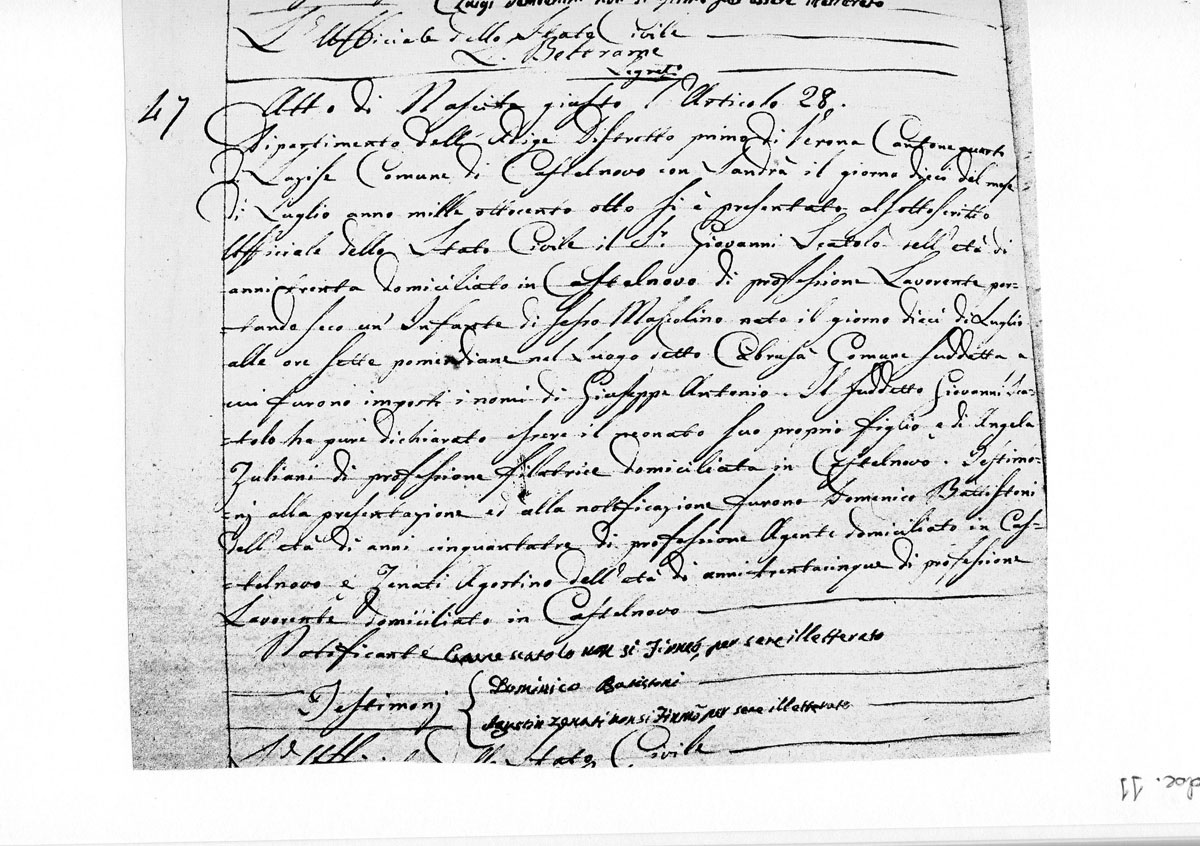 Luigi non si firmò per essere illetterato
L'Ufficiale dello Stato Civile
L. Beltrame
Segret.o
47 Atto di Nascita giusto l'Articolo 28.
Dipartimento dell'Adige Distretto primo di Verona Cantone quarto
di Lazise Comune di Castelnovo con Sandrà il giorno dieci del mese
di Luglio anno mille ottocento otto si è presentato al sottoscritto
Ufficiale dello Stato Civile il Sr. Giovanni Scatolo dell'età di
anni trenta domiciliato in Castelnovo di professione Lavorente por=
=tando seco un' Infante di sesso Mascolino nato il giorno dieci di Luglio
alle ore sette pomeridiane nel Luogo detto Càbrusà Comune suddetta a
cui furono imposti i nomi di Giuseppe Antonio. Il suddetto Giovanni Sca=
=tolo ha pure dichiarato essere il neonato suo proprio figlio e di Angela
Zuliani di professione filatrice domiciliata in Castelnovo. Testimo=
=nj alla presentazione ed alla notificazione furono Domenico Battistoni
dell'età di anni cinquantatre di professione Agente domiciliato in Cas=
=telnovo e Zenati Agostino dell'età di anni trentacinque di professione
Lavorente domiciliato in Castelnovo
Notificante scatolo non si Firmò per sere illetterato
Testimonj { Dominico Batistoni
Agustin Zenati non si Firmò per sere illetterato
L'Ufficiale dello Stato Civile
doc. 11